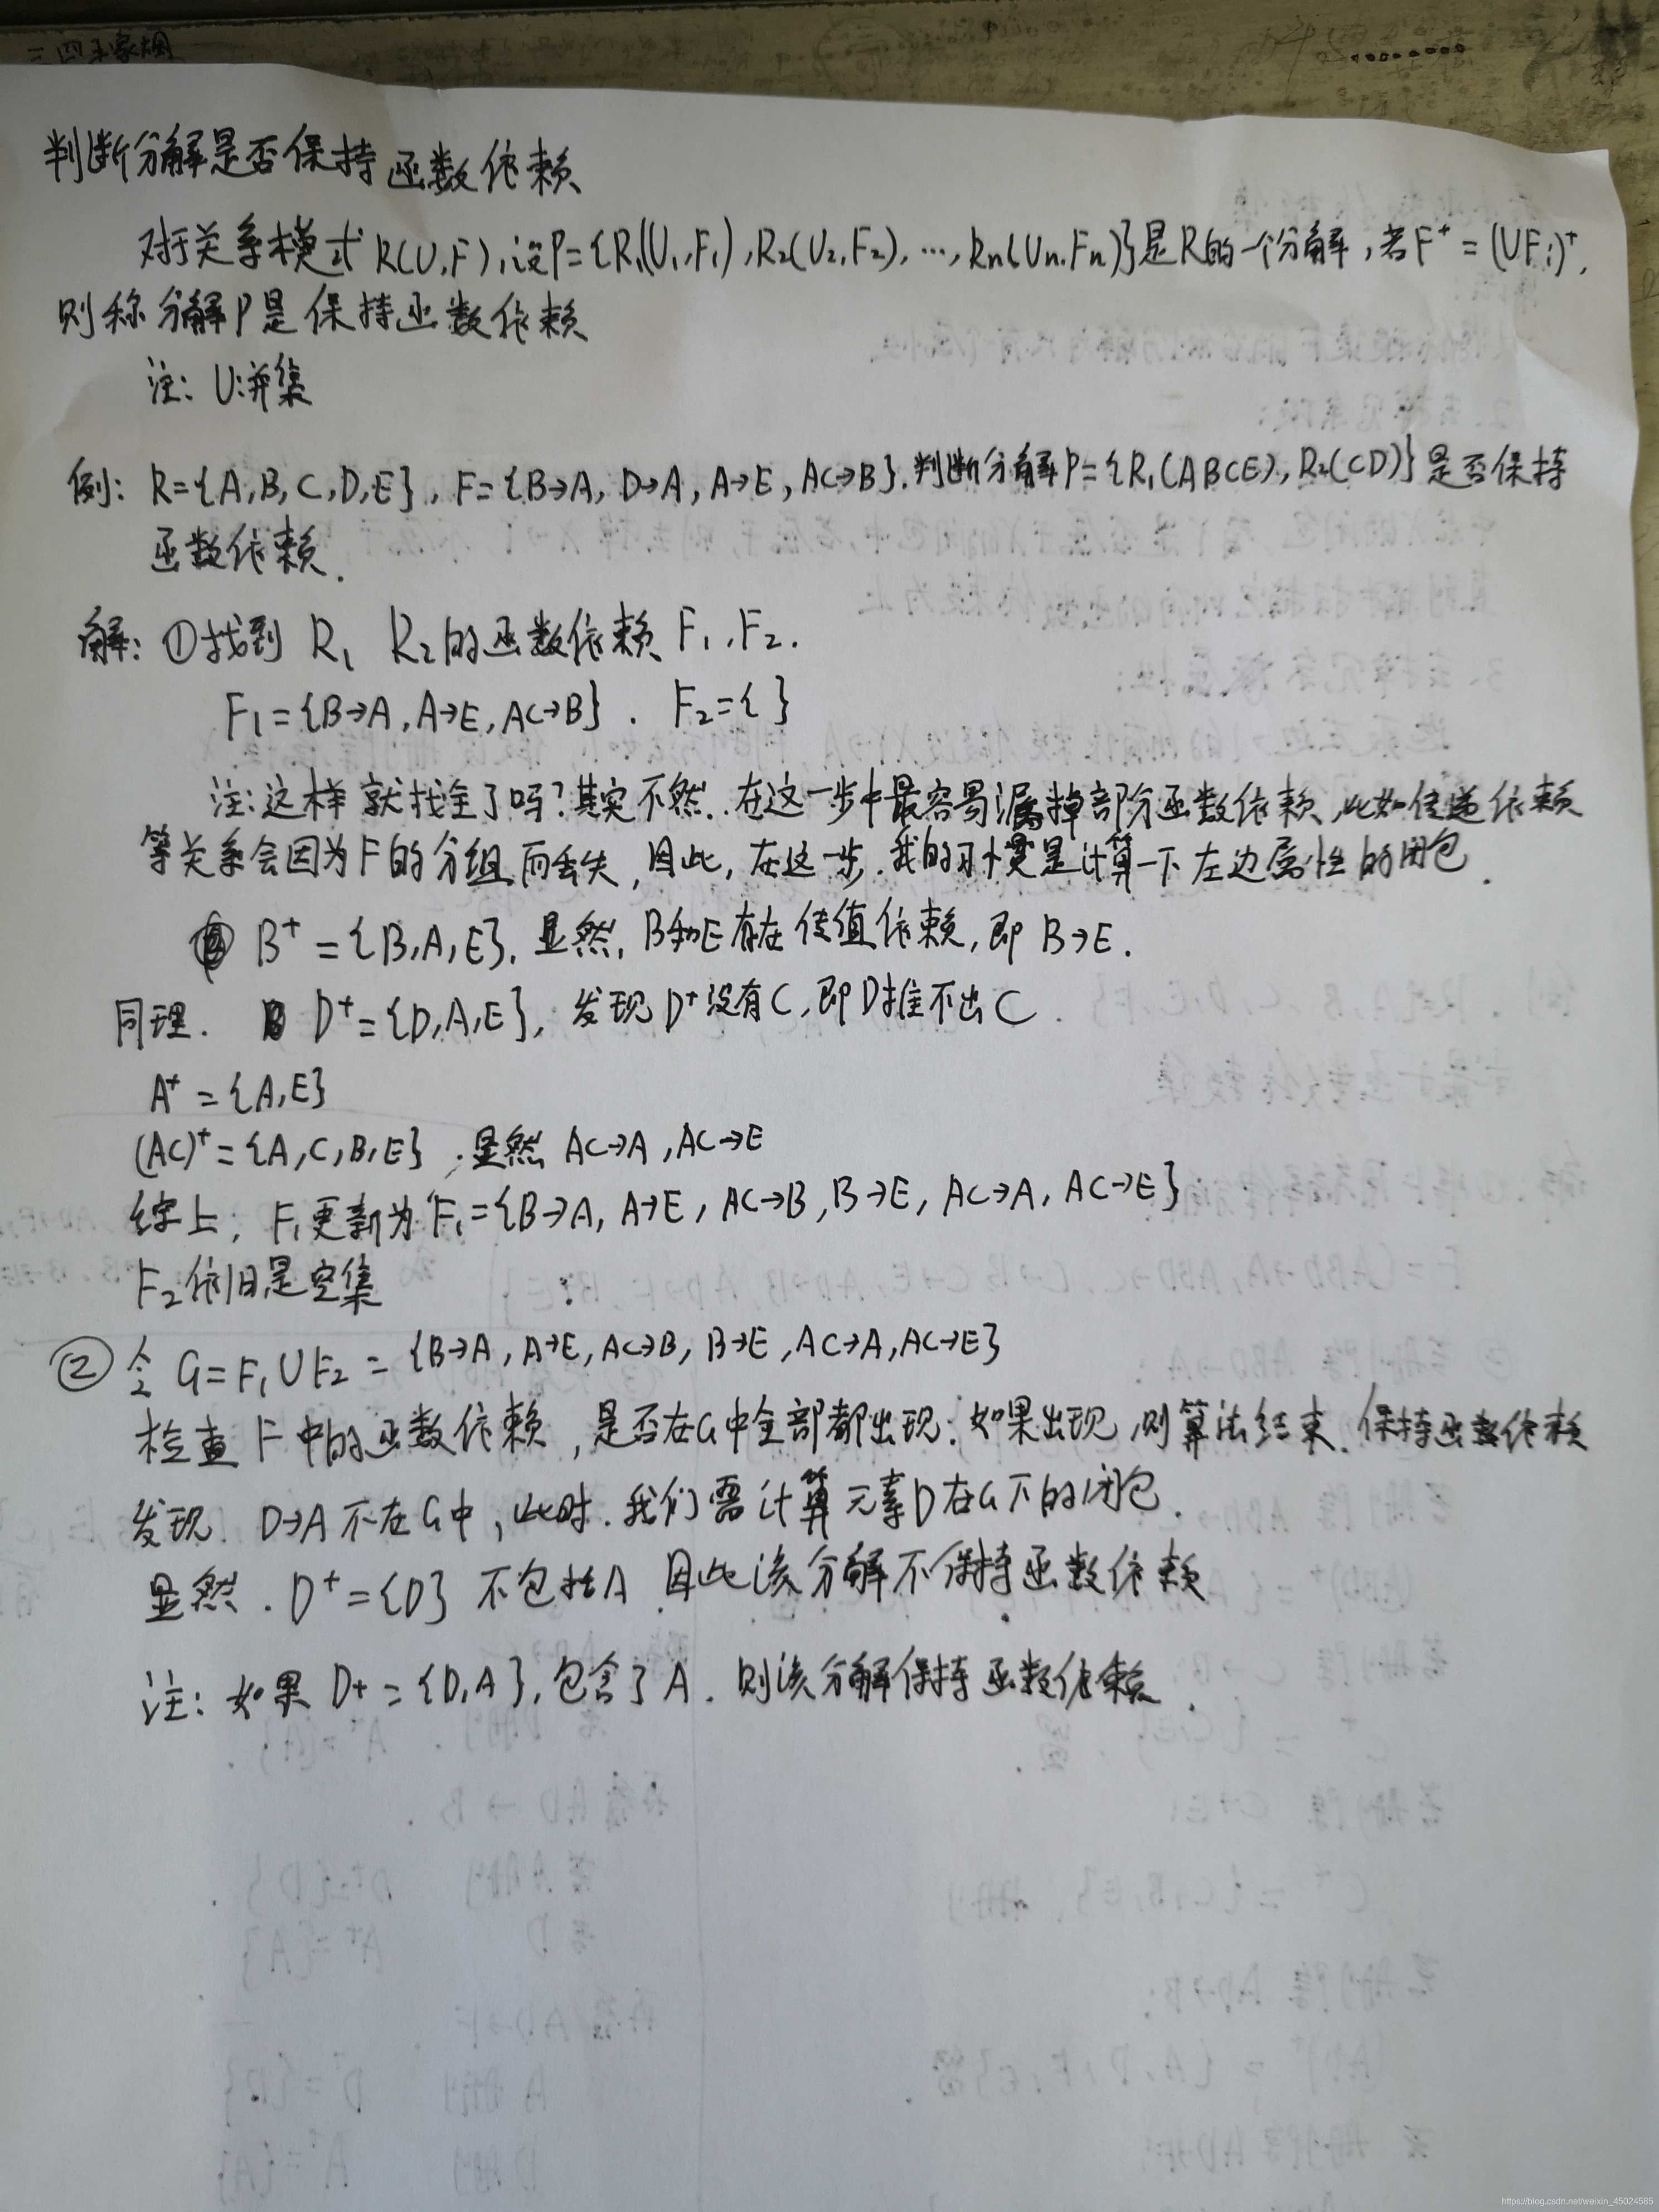 判断分解是否保持函数依赖
对于关系模式R(U,F),设P={R₁(U₁,F₁),R₂(U₂,F₂),…,Rn(Un,Fn)}是R的一个分解,若F⁺=(UFi)⁺,
则称分解P是保持函数依赖
注: U:并集
例: R={A,B,C,D,E}, F={B→A, D→A, A→E, AC→B}.判断分解P={R₁(ABCE), R₂(CD)}是否保持
函数依赖.
解: ①找到 R₁ R₂的函数依赖F₁,F₂.
F₁={B→A,A→E,AC→B}. F₂={ }
注:这样就找全了吗?其实不然.在这一步中最容易漏掉部分函数依赖,比如传递依赖
等关系会因为F的分组而丢失,因此,在这一步.我的习惯是计算一下左边属性的闭包.
B⁺={B,A,E}.显然,B和E存在传值依赖,即 B→E.
同理. D⁺={D,A,E},发现D⁺没有C,即D推不出C.
A⁺={A,E}
(AC)⁺={A,C,B,E}.显然 AC→A,AC→E
综上, F₁更新为F₁={B→A, A→E, AC→B,B→E, AC→A, AC→E}
F₂依旧是空集
② 令 G=F₁UF₂={B→A,A→E,AC→B, B→E,AC→A,AC→E}
检查F中的函数依赖,是否在G中全部都出现.如果出现,则算法结束.保持函数依赖
发现. D→A不在G中,此时.我们需计算元素D在G下的闭包.
显然. D⁺={D} 不包括A.因此该分解不保持函数依赖
注: 如果 D+={D,A},包含了A.则该分解保持函数依赖.
https://blog.csdn.net/weixin_45024585